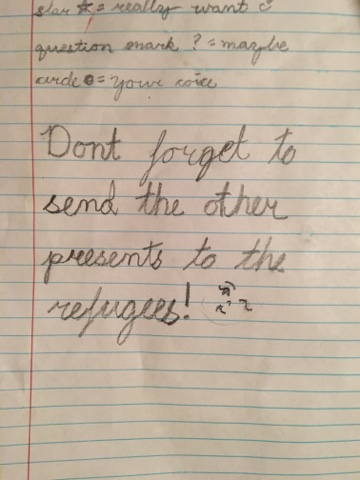 star ☆ = really want
question mark ? = maybe
circle o = your coice
Dont forget to
send the other
presents to the
refugees!